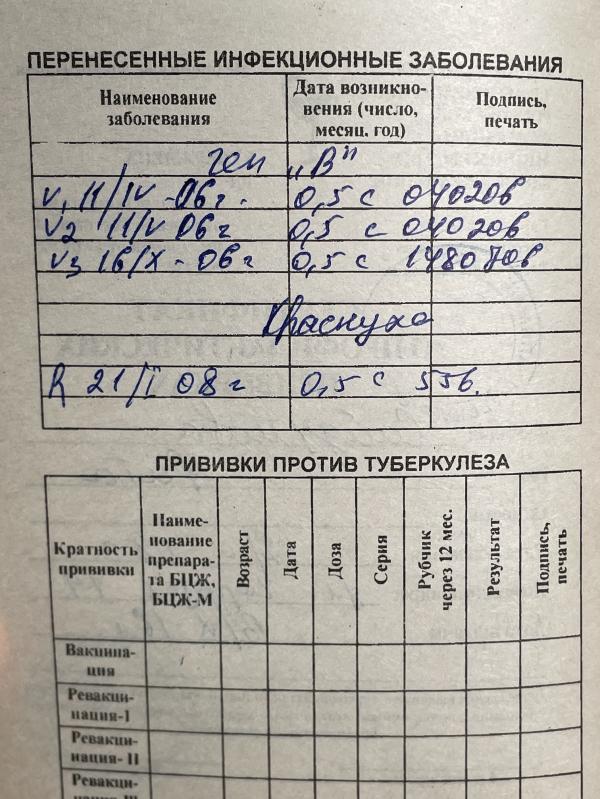 ПЕРЕНЕСЕННЫЕ ИНФЕКЦИОННЫЕ ЗАБОЛЕВАНИЯ
Наименование заболевания
Дата возникно-
вения (число,
месяц, год)
Подпись,
печать
ген „В"
V1 11/IV - 06 г. 0,5 с 040206
V2 11/V 06 г 0,5 с 040206
V3 16/X - 06 г 0,5 с
Краснуха
R 21/I 08 г 0,5 с 556.
ПРИВИВКИ ПРОТИВ ТУБЕРКУЛЕЗА
Кратность
прививки
Наиме-
нование
препара-
та БЦЖ,
БЦЖ-М
Возраст
Дата
Доза
Серия
Рубчик
через 12 мес.
Результат
Подпись,
печать
Вакцина-
ция
Ревакци-
нация-I
Ревакци-
нация- II
Ревакци-